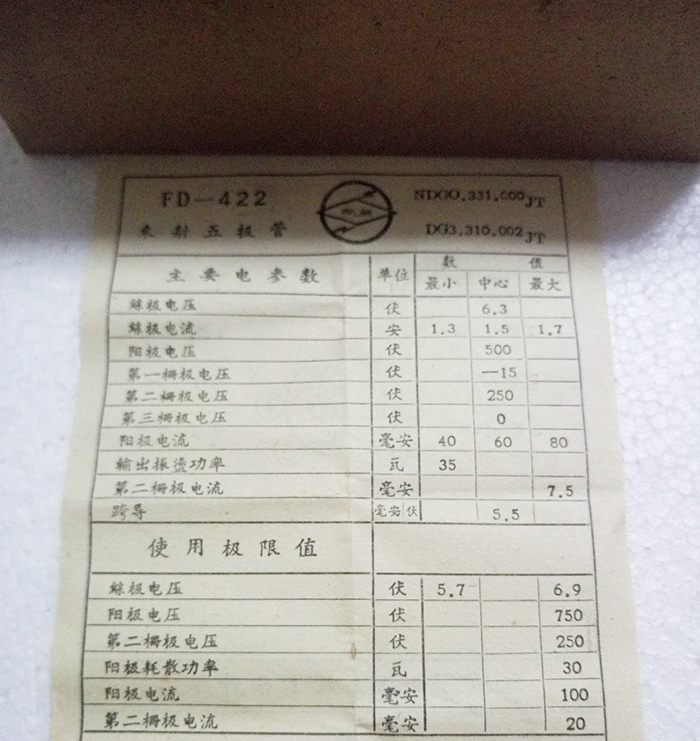 FD—422
NDGO.331.000JT
束射五极管
DG3.310.002JT
主要电参数 单位 数值
最小 中心 最大
丝极电压 伏 6.3
丝极电流 安 1.3 1.5 1.7
阳极电压 伏 500
第一栅极电压 伏 —15
第二栅极电压 伏 250
第三栅极电压 伏 0
阳极电流 毫安 40 60 80
输出振荡功率 瓦 35
第二栅极电流 毫安 7.5
跨导 毫安/伏 5.5
使用极限值
丝极电压 伏 5.7 6.9
阳极电压 伏 750
第二栅极电压 伏 250
阳极耗散功率 瓦 30
阳极电流 毫安 100
第二栅极电流 毫安 20